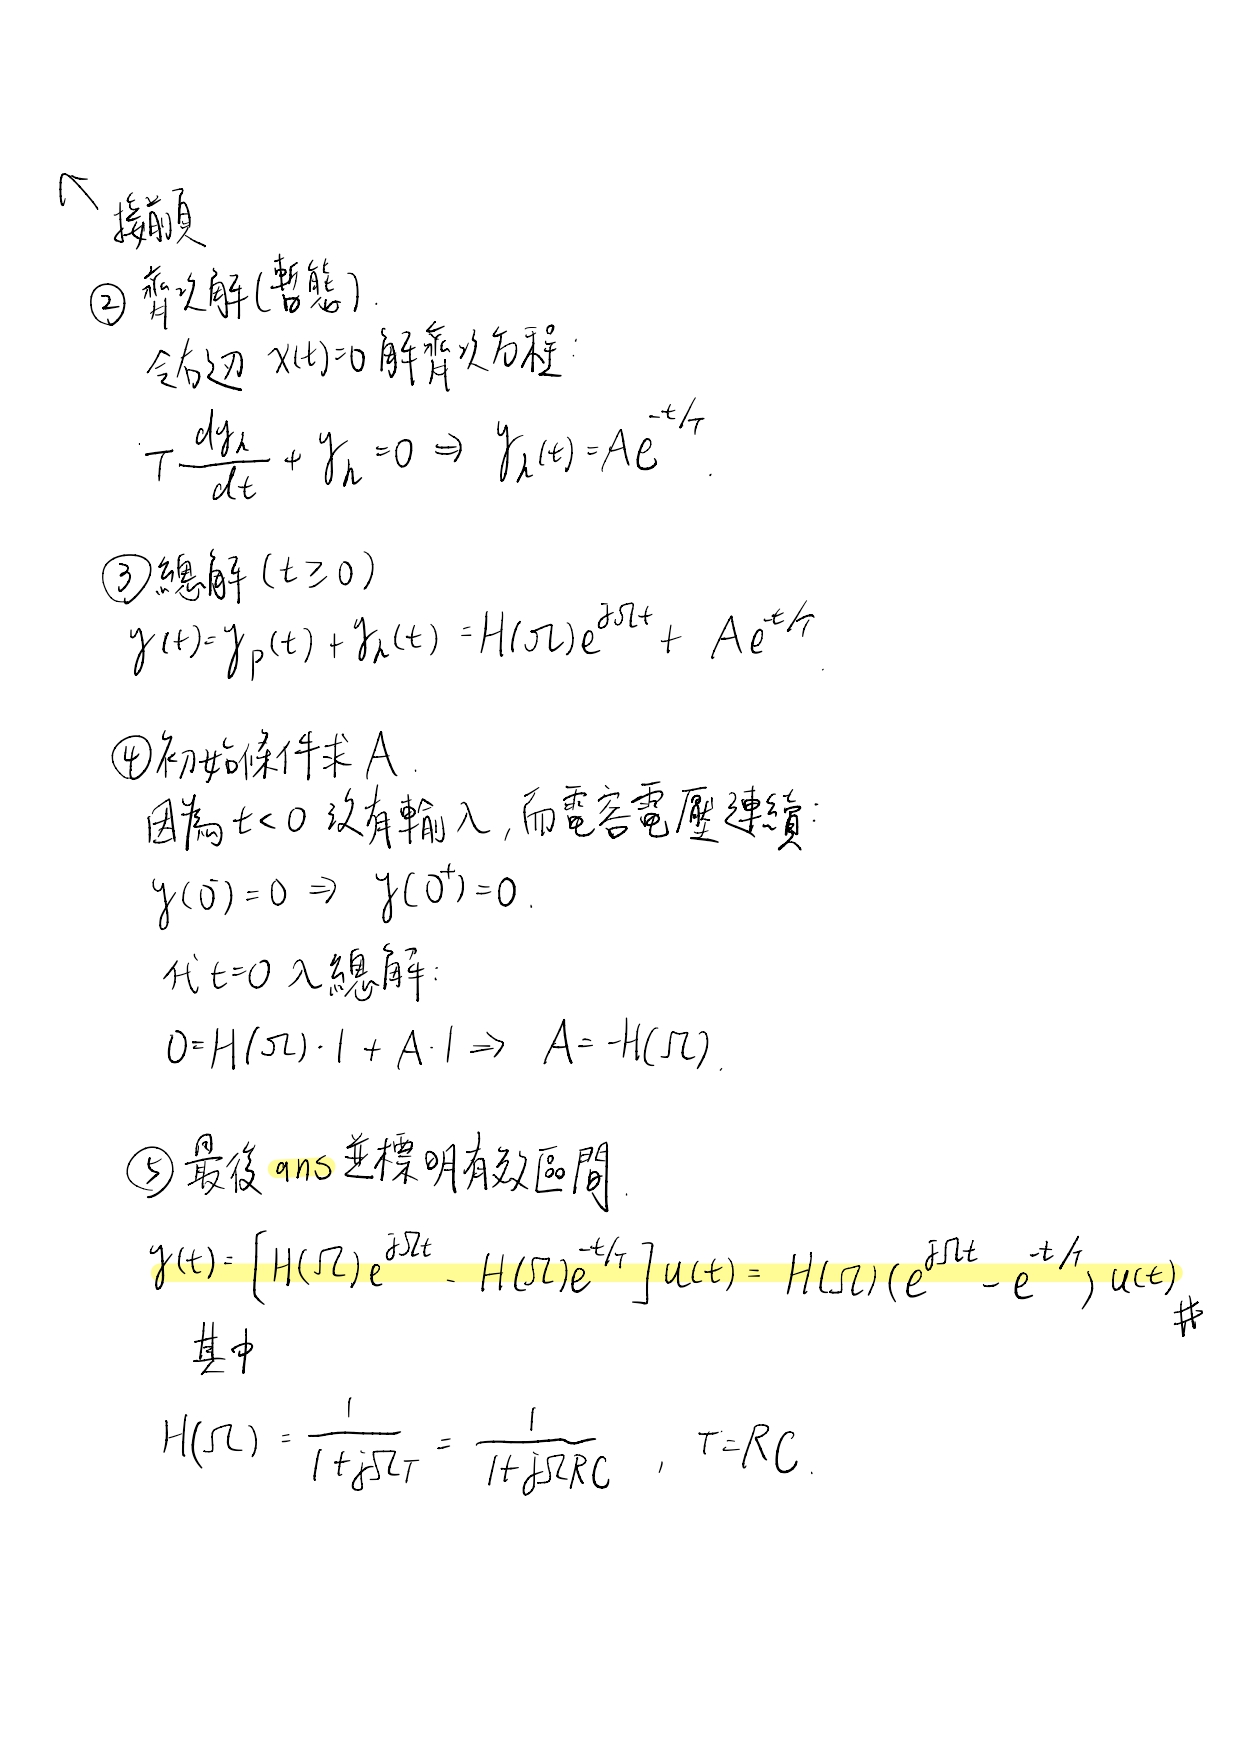 接前頁
② 齊次解(暫態).
令右边 x(t)=0 解齊次方程:
T dy_h/dt + y_h = 0 ⇒ y_h(t) = Ae^{-t/T}.
③ 總解 (t ≥ 0)
y(t) = y_p(t) + y_h(t) = H(Ω)e^{jΩt} + Ae^{-t/T}.
④ 初始條件求 A.
因為 t < 0 沒有輸入, 而電容電壓連續:
y(0⁻) = 0 ⇒ y(0⁺) = 0.
代 t=0 入總解:
0 = H(Ω)·1 + A·1 ⇒ A = -H(Ω).
⑤ 最後 ans 並標明有效區間.
y(t) = [H(Ω)e^{jΩt} - H(Ω)e^{-t/T}] u(t) = H(Ω)(e^{jΩt} - e^{-t/T}) u(t) #
其中
H(Ω) = 1/(1+jΩT) = 1/(1+jΩRC) , T=RC.